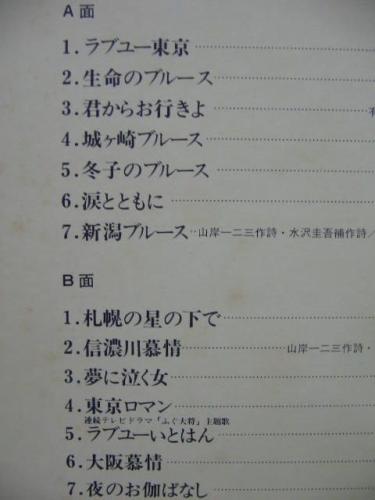 A面
1.ラブユー東京
2.生命のブルース
3.君からお行きよ
4.城ヶ崎ブルース
5.冬子のブルース
6.涙とともに
7.新潟ブルース‥山岸一二三作詩・水沢圭吾補作詩/
B面
1.札幌の星の下で
2.信濃川慕情 山岸一二三作詩・
3.夢に泣く女
4.東京ロマン
連続テレビドラマ「ふぐ大将」主題歌
5.ラブユーいとはん
6.大阪慕情
7.夜のお伽ばなし